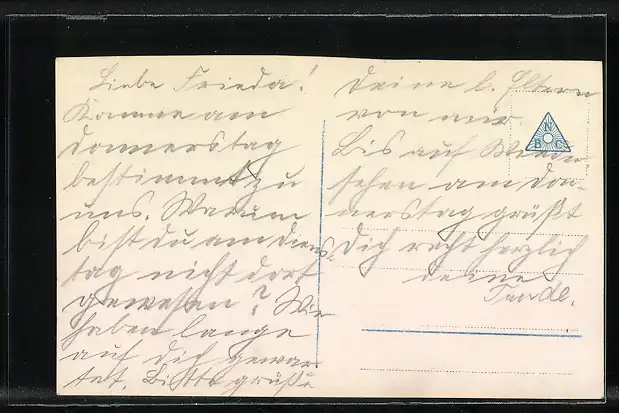 Liebe Frieda!
Komme am
Donnerstag
bestimmt zu
uns. Warum
bist du am Diens-
tag nicht dort
gewesen? Wir
haben lange
auf dich gewar-
tet. Bitte grüße
Deine l. Eltern
von mir.
Bis auf Wieder-
sehen am Don-
nerstag grüßt
Dich recht herzlich
deine
N
B C